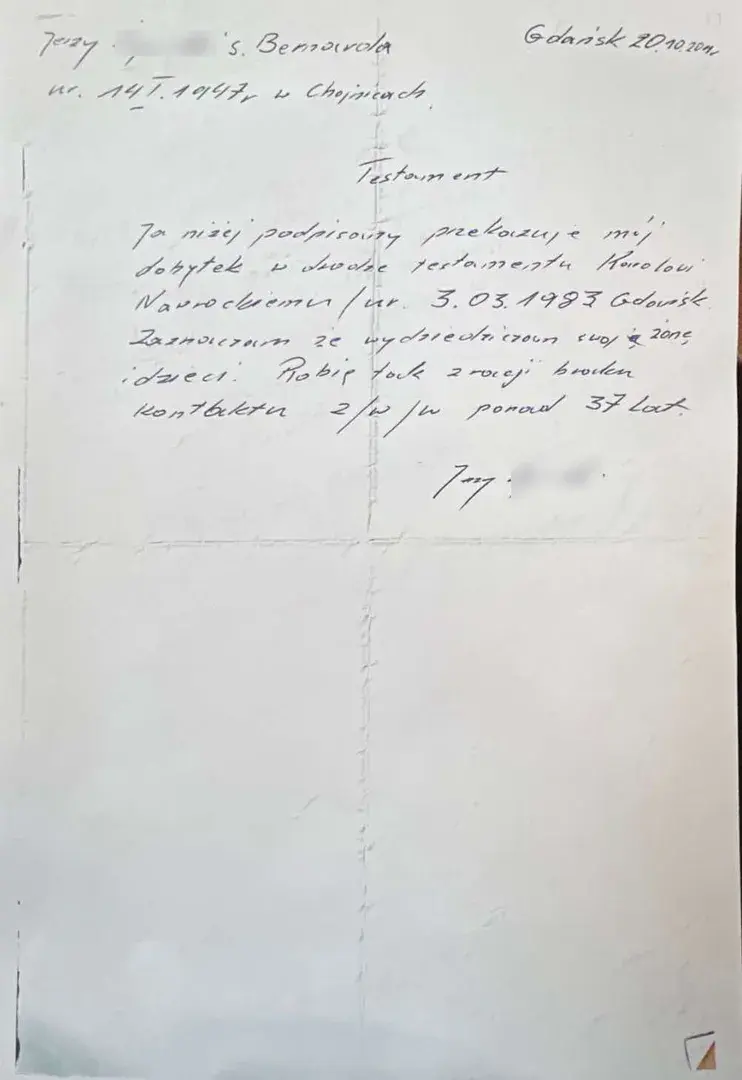 Jerzy s. Bernarda Gdańsk 20.10.2011r
ur. 14 I. 1947r w Chojnicach
Testament
Ja niżej podpisany przekazuje mój
dobytek w drodze testamentu Karolowi
Nawrockiemu /ur. 3.03.1983 Gdańsk.
Zaznaczam że wydziedziczam swoją żonę
i dzieci. Robię tak z racji braku
kontaktu z/w/w ponad 37 lat.
Jerzy